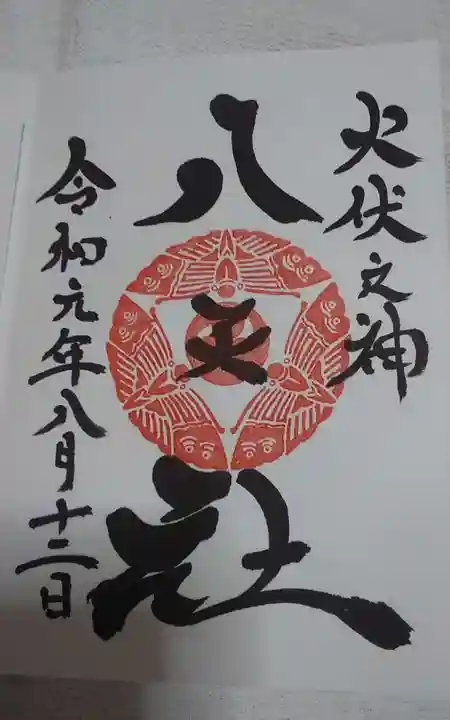 火伏之神
八天社
令和元年八月十三日